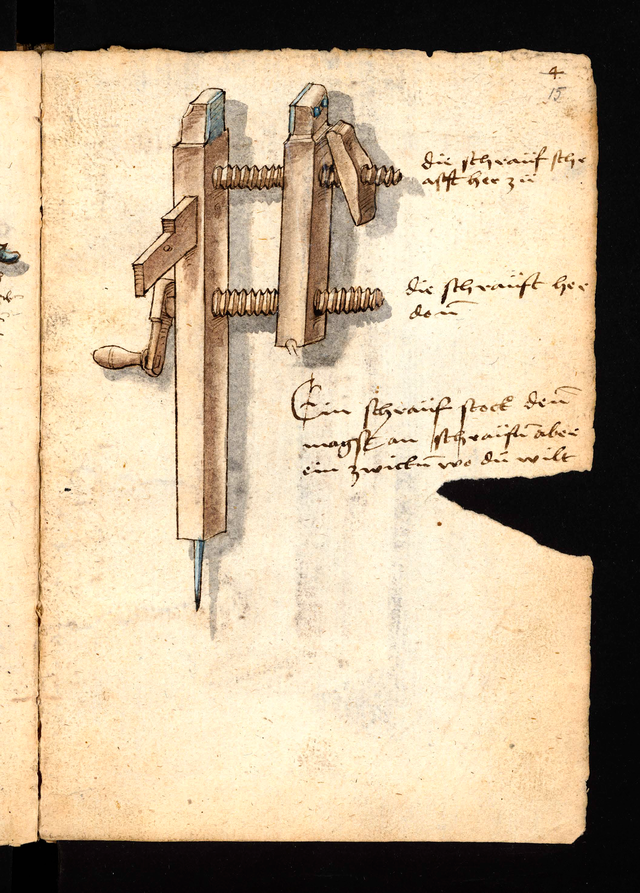 4
15
die schrauf schr
afft her zu
die schrauft her
don̄
Ein schrauf stock den̄
magst an schraufn̄ aber
ein zwickn̄ wo du wilt